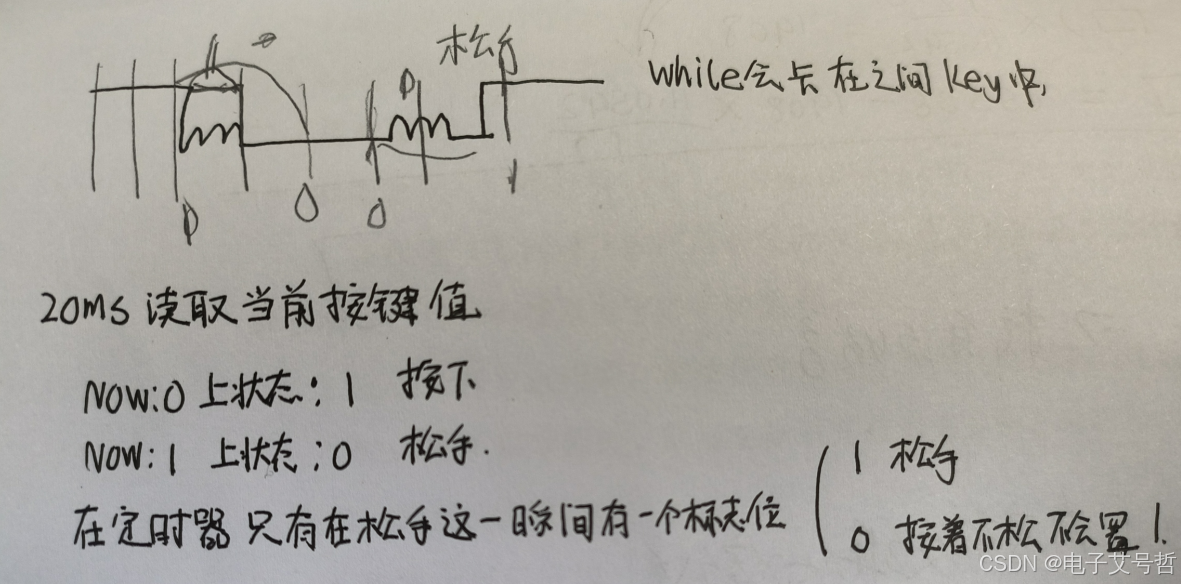 松手
while会卡在之间key中,
0
0
0
0
1
20ms 读取当前按键值
Now:0 上状态: 1 按下
Now: 1 上状态:0 松手.
在定时器 只有在松手这一瞬间有一个标志位
1 松手
0 按着不松不会置1.
CSDN @电子艾号哲